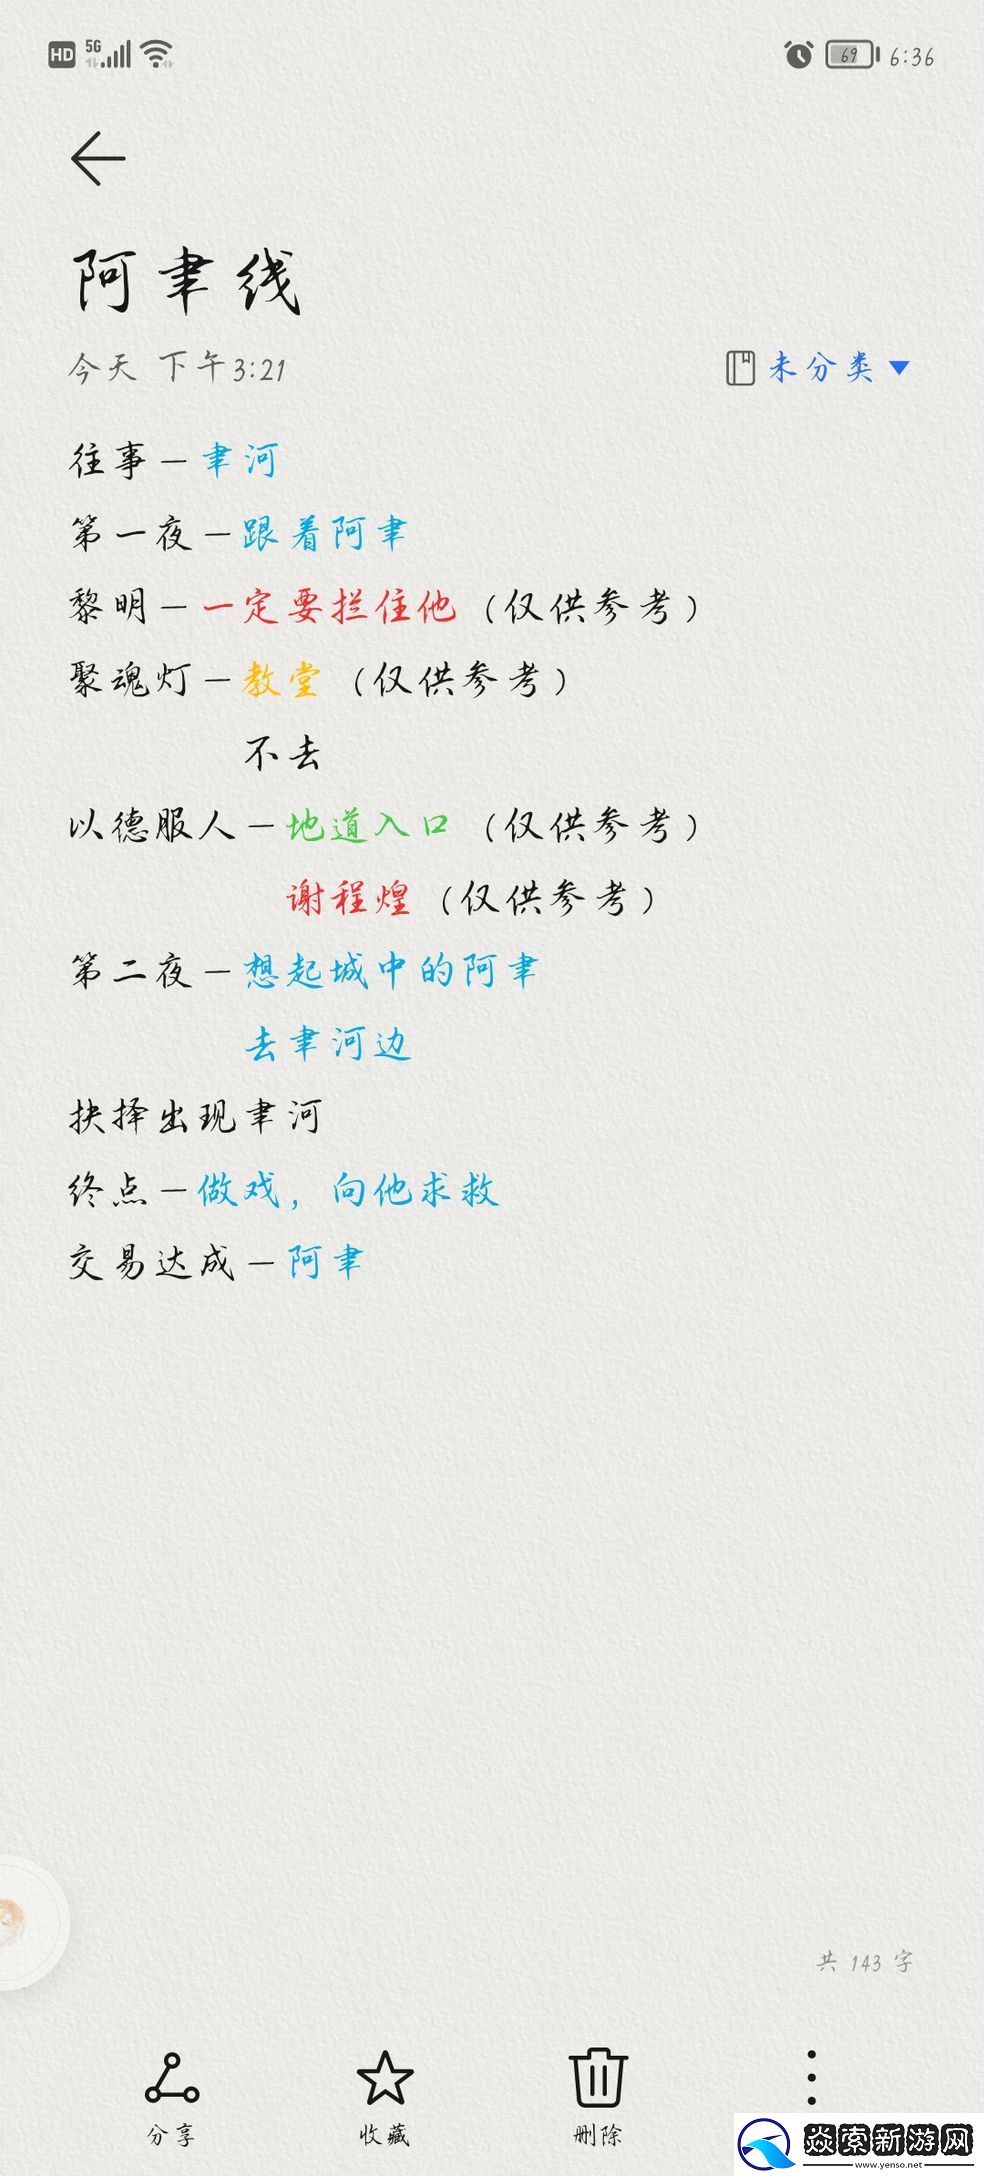 HD 5G 69 6:36
阿聿线
今天 下午3:21 未分类
往事－聿河
第一夜－跟着阿聿
黎明－一定要拦住他（仅供参考）
聚魂灯－教堂（仅供参考）
不去
以德服人－地道入口（仅供参考）
谢程煌（仅供参考）
第二夜－想起城中的阿聿
去聿河边
抉择出现聿河
终点－做戏，向他求救
交易达成－阿聿
共 143 字
分享 收藏 删除
焱索新游网
www.yenso.net